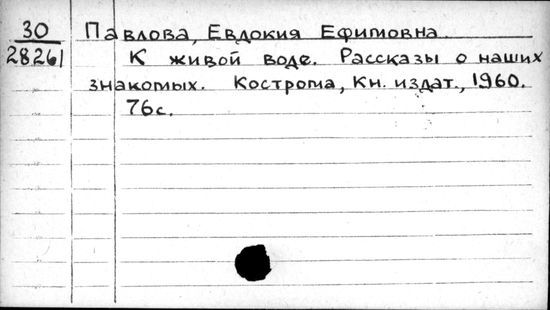 30 Павлова, Евдокия Ефимовна.
28261 К живой воде. Рассказы о наших
знакомых. Кострома, Кн. издат., 1960.
76с.